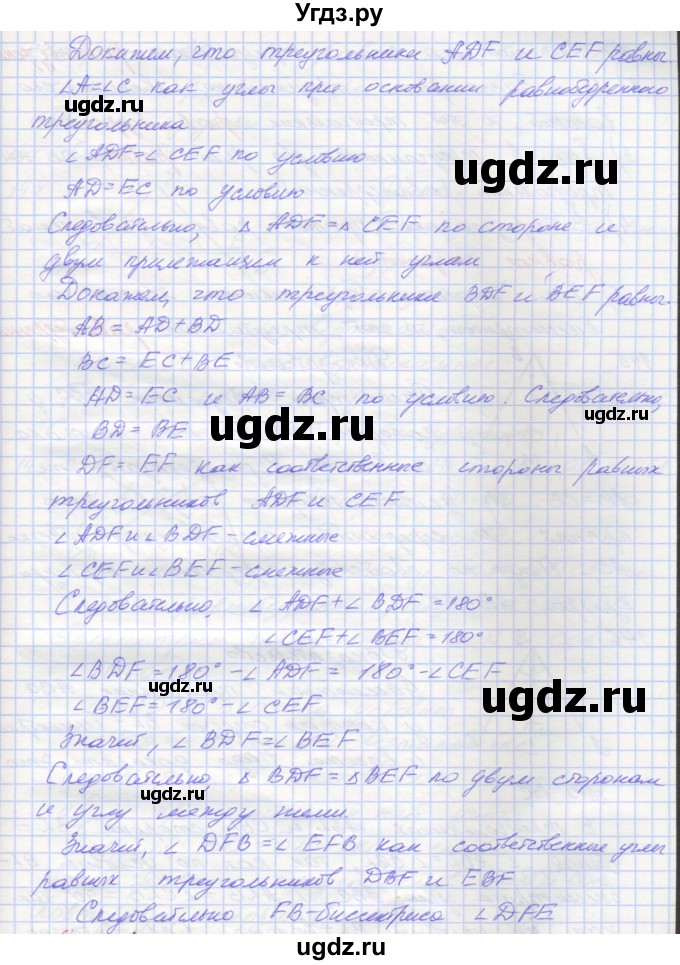 Угдз.ру
Докажем, что треугольники ADF и CEF равны
∠A=∠C как углы при основании равнобедренного
треугольника
∠ADF=∠CEF по условию
AD=EC по условию
Следовательно, △ ADF=△ CEF по стороне и
двум прилежащим к ней углам
Докажем, что треугольники BDF и BEF равны.
AB = AD+BD
BC = EC+BE
AD=EC и AB=BC по условию. Следовательно,
BD=BE
DF=EF как соответственные стороны равных
треугольников ADF и CEF
∠ADF и ∠BDF-смежные
∠CEF и ∠BEF-смежные
Следовательно, ∠ADF+∠BDF=180°
∠CEF+∠BEF=180°
∠BDF=180°-∠ADF=180°-∠CEF
∠BEF=180°-∠CEF
Значит, ∠BDF=∠BEF
Следовательно, △ BDF=△BEF по двум сторонам
и углу между ними.
Значит, ∠DFB=∠EFB как соответственные углы
равных треугольников DBF и EBF
Следовательно FB-биссектриса ∠DFE
ugdz.ru
ugdz.ru
ugdz.ru
ugdz.ru
ugdz.ru
ugdz.ru
ugdz.ru
ugdz.ru
ugdz.ru
ugdz.ru
ugdz.ru